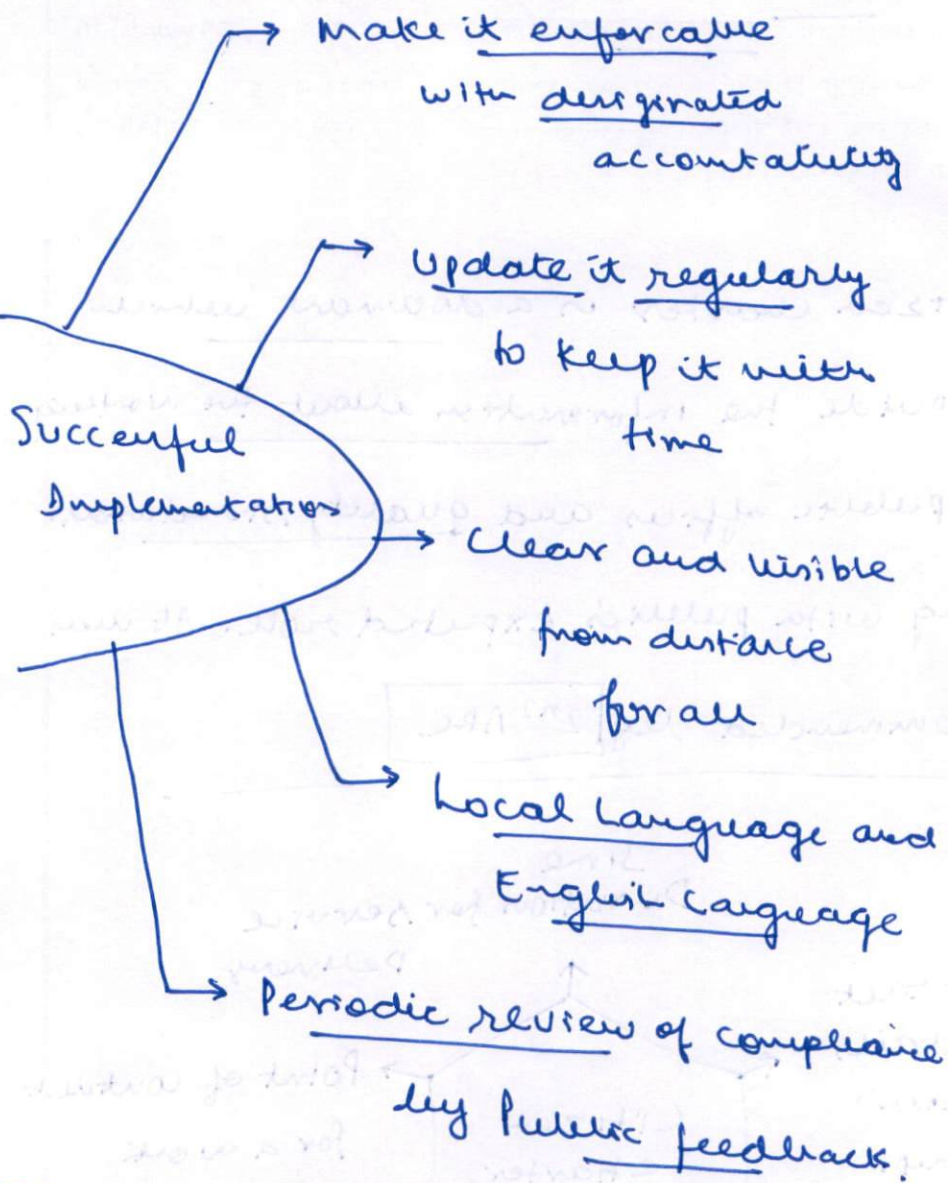 Make it enforcable
with designated
accountability
Update it regularly
to keep it with
time
Successful
Implementation
Clear and visible
from distance
for all
Local Language and
English Language
Periodic review of compliance
by Public feedback.